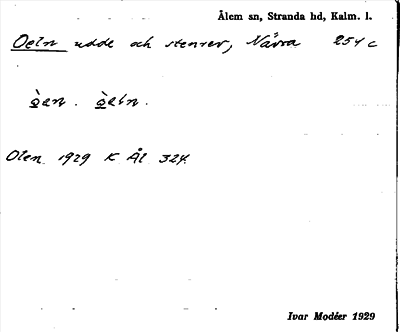 Ålem sn, Stranda hd, Kalm. l.
Oeln udde och stenrev, Návra 254 c
òen. òeln.
Olen 1929 K Ål 324.
Ivar Modéer 1929